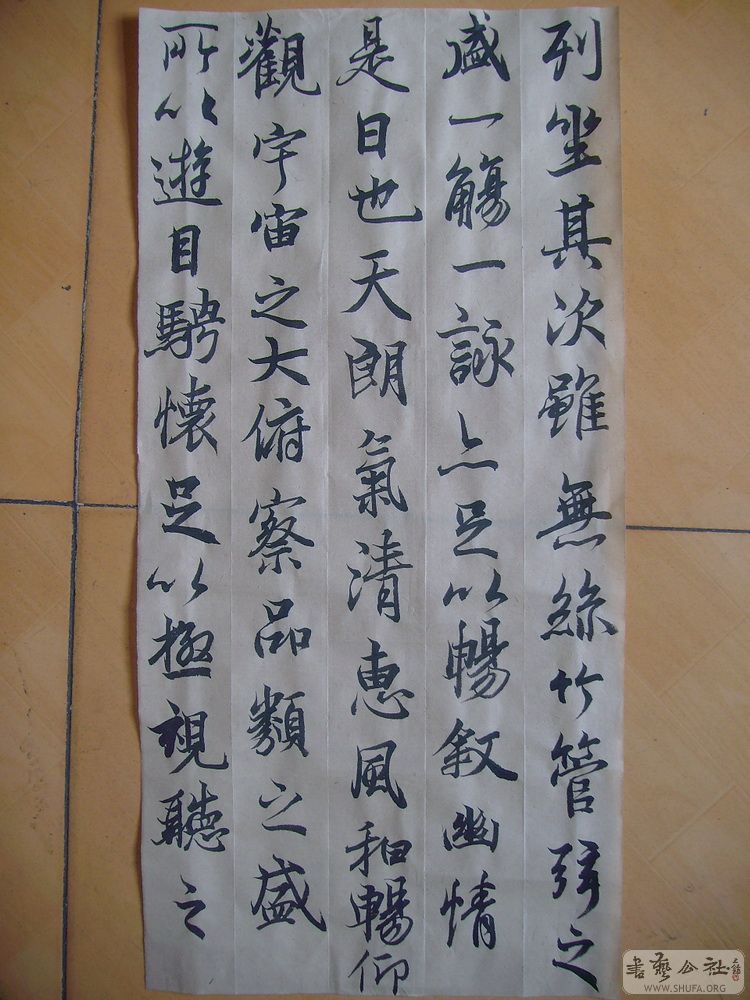 列坐其次雖無絲竹管弦之
盛一觴一詠亦足以暢敘幽情
是日也天朗氣清惠風和暢仰
觀宇宙之大俯察品類之盛
所以遊目騁懷足以極視聽之
書藝公社
WWW.SHUFA.ORG